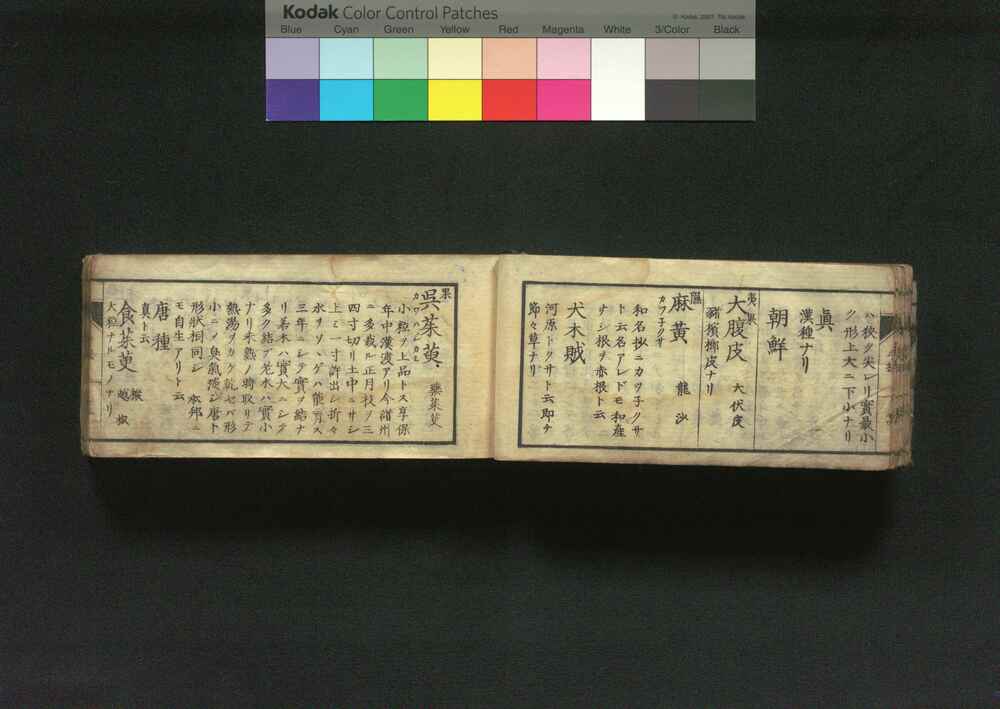 Kodak Color Control Patches
© Kodak, 2007 TM: Kodak
Blue Cyan Green Yellow Red Magenta White 3/Color Black
ハ狹ク尖レリ實最小
ク形上大ニ下小ナリ
眞
漢種ナリ
朝鮮
夷果
大腹皮 大伏皮
豬檳榔皮ナリ
隰
麻黄 龍沙
カツ子クサ
和名抄ニカツ子クサ
ト云名アレドモ和産
ナシ根ヲ赤根ト云
犬木賊
河原トクサト云即チ
節々草ナリ
果
呉茱萸
カワハジカミ
小粒ヲ上品トス享保
年中漢渡アリ今諸州
ニ多栽ル正月枝ノ三
四寸切リ土中ニサシ
上ミ一寸許出シ折々
水ヲソヽゲハ能育ス
三年ニシテ實ヲ結ナ
リ弟木ハ實大ニシテ
多ク結ブ老木ハ實小
ナリ未熟ノ時取リテ
熱湯ヲカケ乾セバ形
小ニノ臭氣
形狀相同シ 本邦ニ
モ自生アリト云
唐種
真ト云
食茱萸 越椒
大粒ナルモノナリ